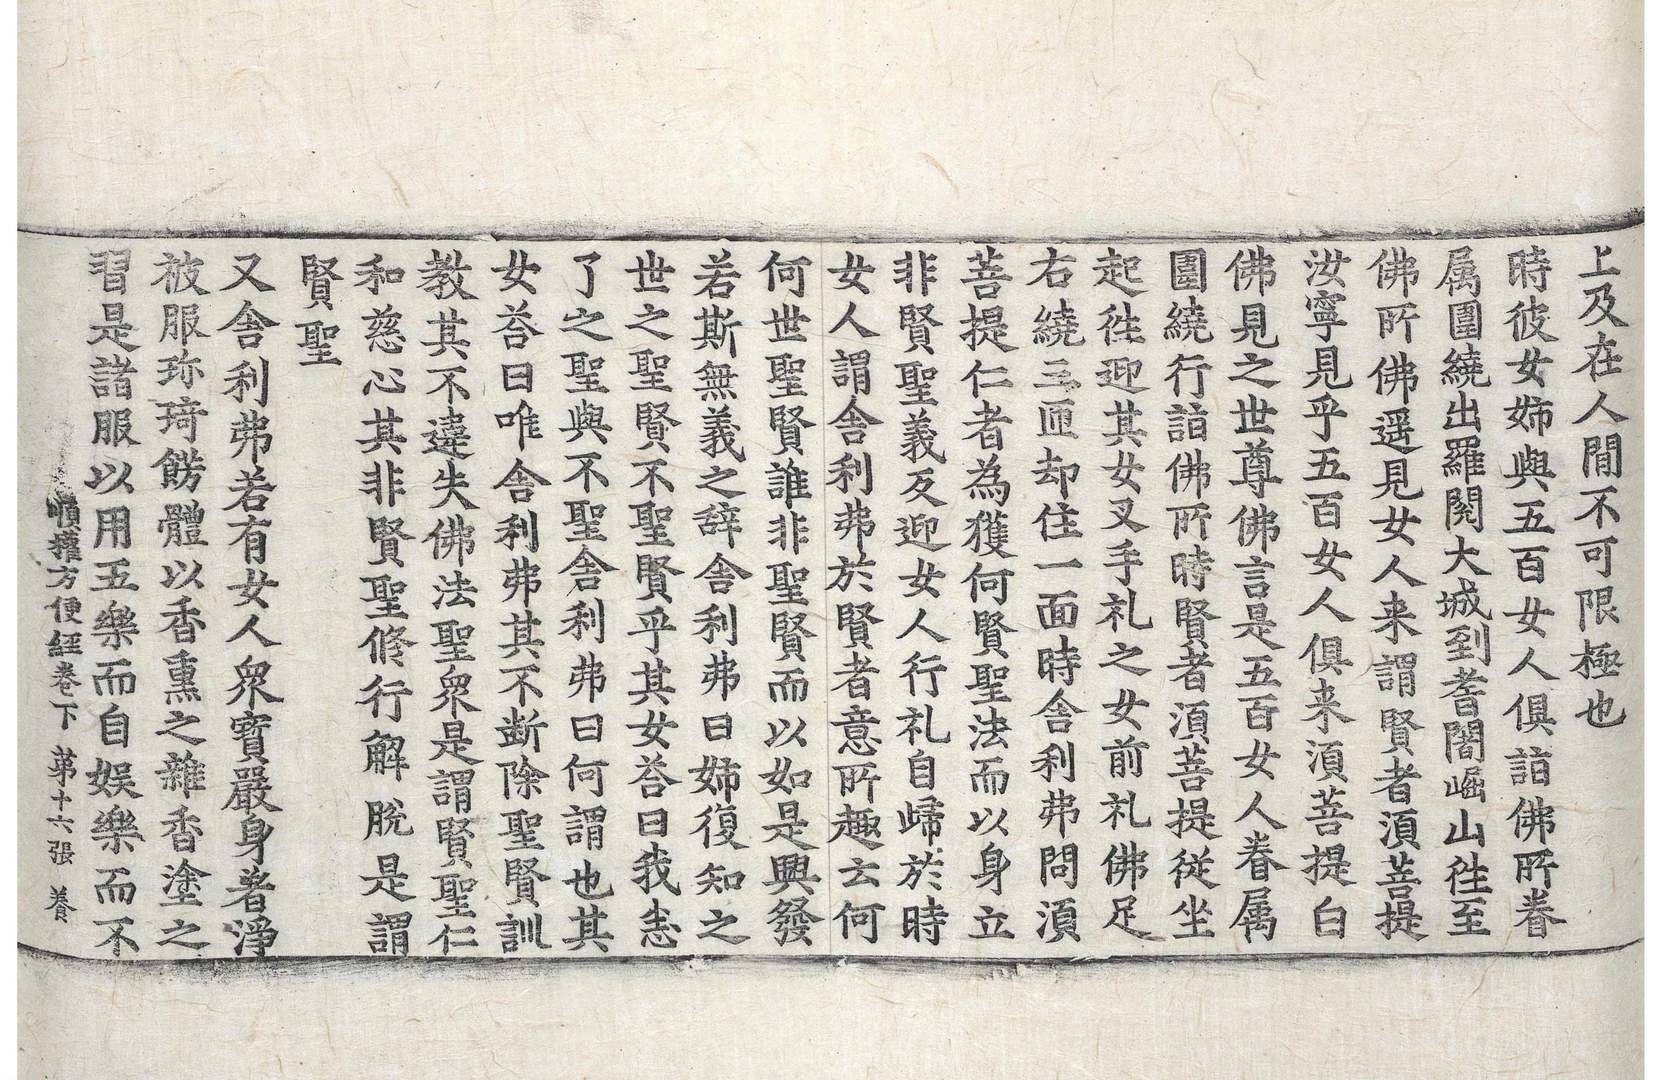 上及在人間不可限極也
時彼女姉與五百女人俱詣佛所眷
属圍繞出羅閱大城到耆闍崛山往至
佛所佛遥見女人来謂賢者湏菩提
汝寧見乎五百女人俱来湏菩提白
佛見之世尊佛言是五百女人眷属
圍繞行詣佛所時賢者湏菩提従坐
起徃迎其女叉手礼之女前礼佛足
右繞三匝却住一面時舎利弗問湏
菩提仁者為獲何賢聖法而以身立
非賢聖義反迎女人行礼自歸於時
女人謂舎利弗於賢者意所趣云何
何世聖賢誰非聖賢而以如是興發
若斯無義之辞舎利弗曰姉復知之
世之聖賢不聖賢乎其女荅曰我悉
了之聖與不聖舎利弗曰何謂也其
女荅曰唯舎利弗其不断除聖賢訓
教其不違失佛法聖衆是謂賢聖仁
和慈心其非賢聖修行解脫是謂
賢聖
又舎利弗若有女人衆寶嚴身著淨
被服珎琦餝體以香熏之雜香塗之
習是諸服以用五樂而自娯樂而不
順權方便経卷下 第十六張 養